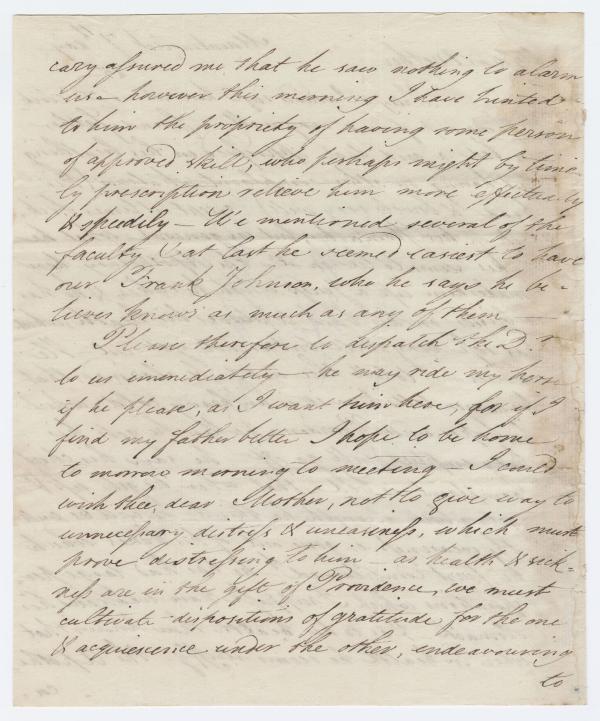 cary assured me that he saw nothing to alarm
us – however this morning I have hinted
to him the propriety of having some person
of approved skill, who perhaps might by time-
ly prescription relieve him more effectually
& speedily – We mentioned several of the
faculty & at last he seemed easiest to have
our Frank Johnson, who he says he be-
lieves knows as much as any of them –
Please therefore to dispatch the Dr
to us immediately – he may ride my horse
if he please, as I want him here, for if I
find my father better I hope to be home
to morrow morning to meeting – I could
wish thee, dear Mother, not to give way to
unnecessary distress & uneasiness, which must
prove distressing to him – as health & sick-
ness are in the gift of Providence, we must
cultivate dispositions of gratitude for the one
& acquiescence under the other, endeavouring
to